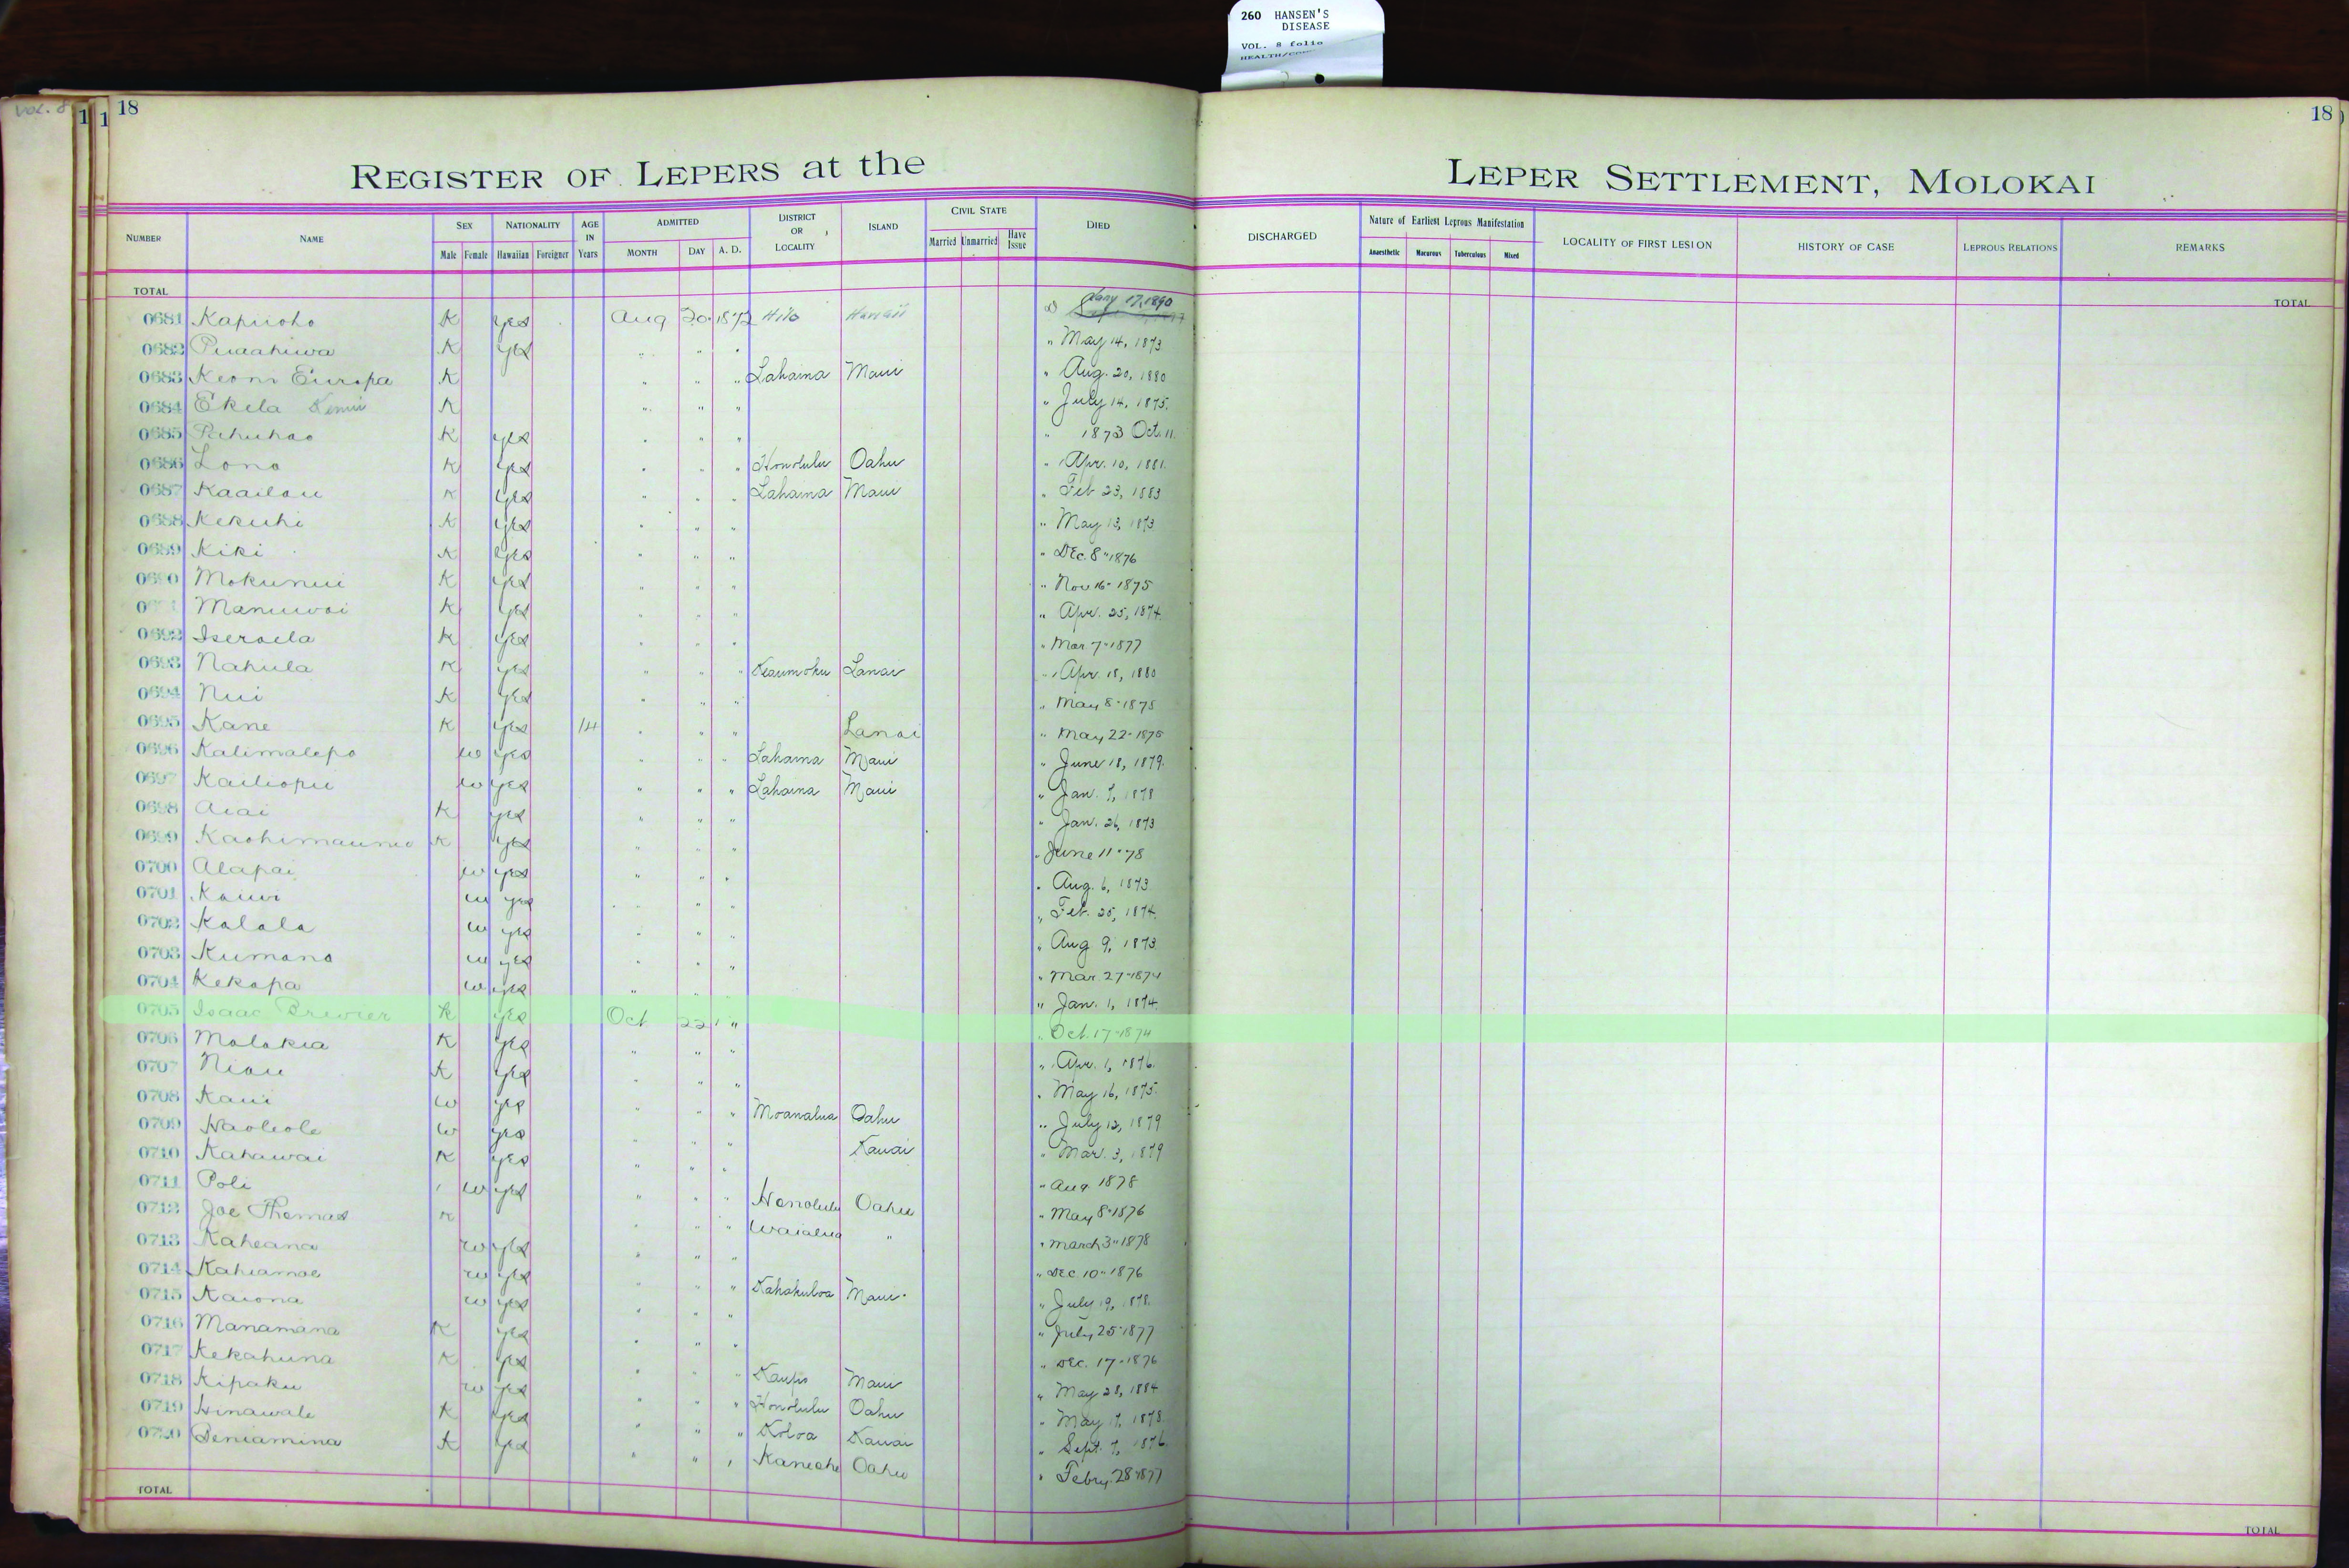 260 HANSEN'S
DISEASE
VOL. 8 folio
VOL. 8
18
18
REGISTER OF LEPERS at the LEPER SETTLEMENT, MOLOKAI
NUMBER NAME SEX Male Female NATIONALITY Hawaiian Foreigner AGE IN Years ADMITTED MONTH DAY A. D. DISTRICT OR LOCALITY ISLAND CIVIL STATE Married Unmarried Have Issue DIED DISCHARGED Nature of Earliest Leprous Manifestation Anaesthetic Macurous Tuberculous Mixed LOCALITY OF FIRST LESION HISTORY OF CASE LEPROUS RELATIONS REMARKS
TOTAL TOTAL
0681 Kapuoho K yes Aug 20 1872 Hilo Hawaii Jany 17, 1890
0682 Puaahiwa K yes " " " " May 14, 1873
0683 Keoni Europa K " " " Lahaina Maui " Aug. 20, 1880
0684 Ekela K " " " " July 14, 1875.
0685 Pahuhao K yes " " " " 1873 Oct. 11.
0686 Lono K yes " " " Honolulu Oahu " Apr. 10, 1881.
0687 Kaailau K yes " " " Lahaina Maui " Feb 23, 1883
0688 Kekuhi K yes " " " " May 13, 1873
0689 Kiki K yes " " " " Dec. 8" 1876
0690 Mokunui K yes " " " " Nov 16" 1875
Manuwai K yes " " " " Apr. 25, 1874.
0692 Iseraela K yes " " " " Mar 7" 1877
0693 Nahula K yes " " " Keaumoku Lanai " Apr. 18, 1880
0694 Nui K yes " " " " May 8" 1875
0695 Kane K yes 14 " " " Lanai " May 22" 1878
0696 Kalimalepo w yes " " " Lahaina Maui " June 18, 1879.
0697 Kailiopu w yes " " " Lahaina Maui " Jan. 7, 1878
0698 Aiai K yes " " " " Jan. 26, 1873
0699 K yes " " " " June 11" 78
0700 Alapai w yes " " " " Aug. 6, 1873
0701 Kauwi w yes " " " " Feb. 25, 1874.
0702 Kalala w yes " " " " Aug 9, 1873.
0703 Kumano w yes " " " " Mar 27" 1874
0704 Kekapa w yes " " " " Jan. 1, 1874.
0705 Isaac Brewer K yes Oct 22 " " Oct. 17" 1874
0706 Molokia K yes " " " " Apr. 1, 1876.
0707 Niau K yes " " " " May 16, 1875.
0708 Kaui w yes " " " Moanalua Oahu " July 12, 1879
0709 Haoleole w yes " " " Kauai " Mar. 3, 1879
0710 Kahawai K yes " " " " Aug 1878
0711 Poli w yes " " " Honolulu Oahu " May 8" 1876
0712 Joe Thomas K " " " Waialua " " March 3" 1878
0713 Kaheana w yes " " " " Dec. 10" 1876
0714 Kahiamoe w yes " " " Kahakuloa Maui " July 19, 1878.
0715 Kaiona w yes " " " " July 25" 1877
0716 Manamana K yes " " " " Dec. 17" 1876
0717 Kekahuna K yes " " " Kaupo Maui " May 28, 1884
0718 Kipaku w yes " " " Honolulu Oahu " May 17, 1878.
0719 Hinawale K yes " " " Koloa Kauai " Sept. 7, 1876.
0720 Beniamina K yes " " " Kaneohe Oahu " Febry. 28" 1877
TOTAL TOTAL